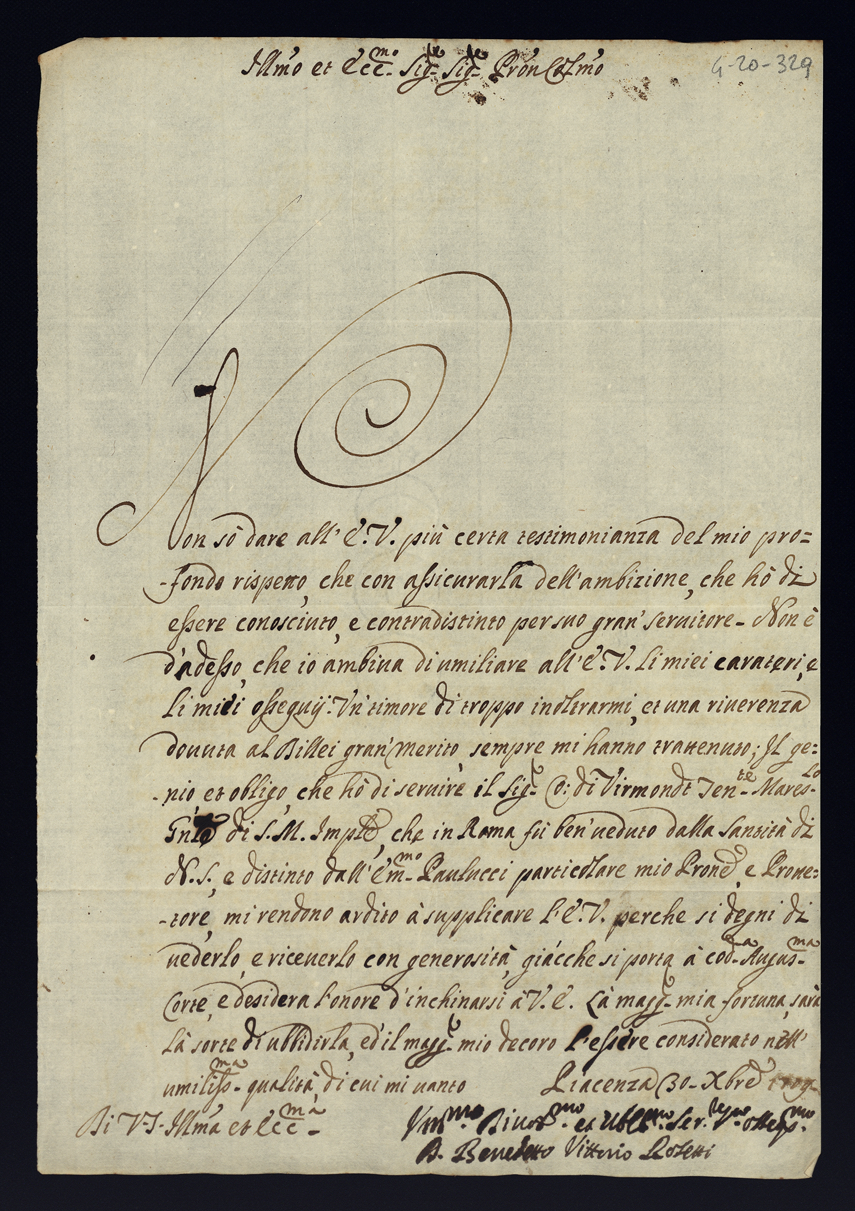 Illmo et Ecc.mo Sig.re Sig.re Pron Colmo
G-20-329
Non sò dare all' E.V. più certa testimonianza del mio pro=
-fondo rispetto, che con assicurarla dell'ambizione, che hò di
essere conosciuto, e contradistinto per suo gran' seruitore- Non è
d'adesso, che io ambiua di umiliare all' E.V. li miei carateri, e
li miei ossequij. Vn' timore di troppo inoltrarmi, et una riuerenza
douuta al Di Lei gran' merito, sempre mi hanno trattenuto; Il ge=
-nio, et obligo, che hò di seruire il Sig.r C: di Virmondt Ten.te Mares-lo
Gnle di S.M. Imple, che in Roma fù ben' ueduto dalla Santità di
N.S., e distinto dall' Em.mo Paulucci particolare mio Prone, e Prote=
-tore, mi rendono ardito à supplicare l'E.V. perche si degni di
uederlo, e riceuerlo con generosità, giàcche si porta à cod.a Augus.ma
Corte, e desidera l'onore d'inchinarsi à V.E. Là magg.r mia fortuna, sarà
là sorte di ubbidirla, ed' il magg.r mio decoro l'essere considerato nell'
umiliss.ma qualità, di cui mi uanto Piacenza 30- Xbre
Di V.S. Illma et Ecc.ma
Vm.mo Diuot.mo et Obl.mo Ser.re
D. Benedetto Vittorio Rosetti